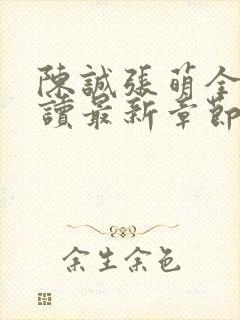 陳誠張萌全
讀最新章節
余生余色